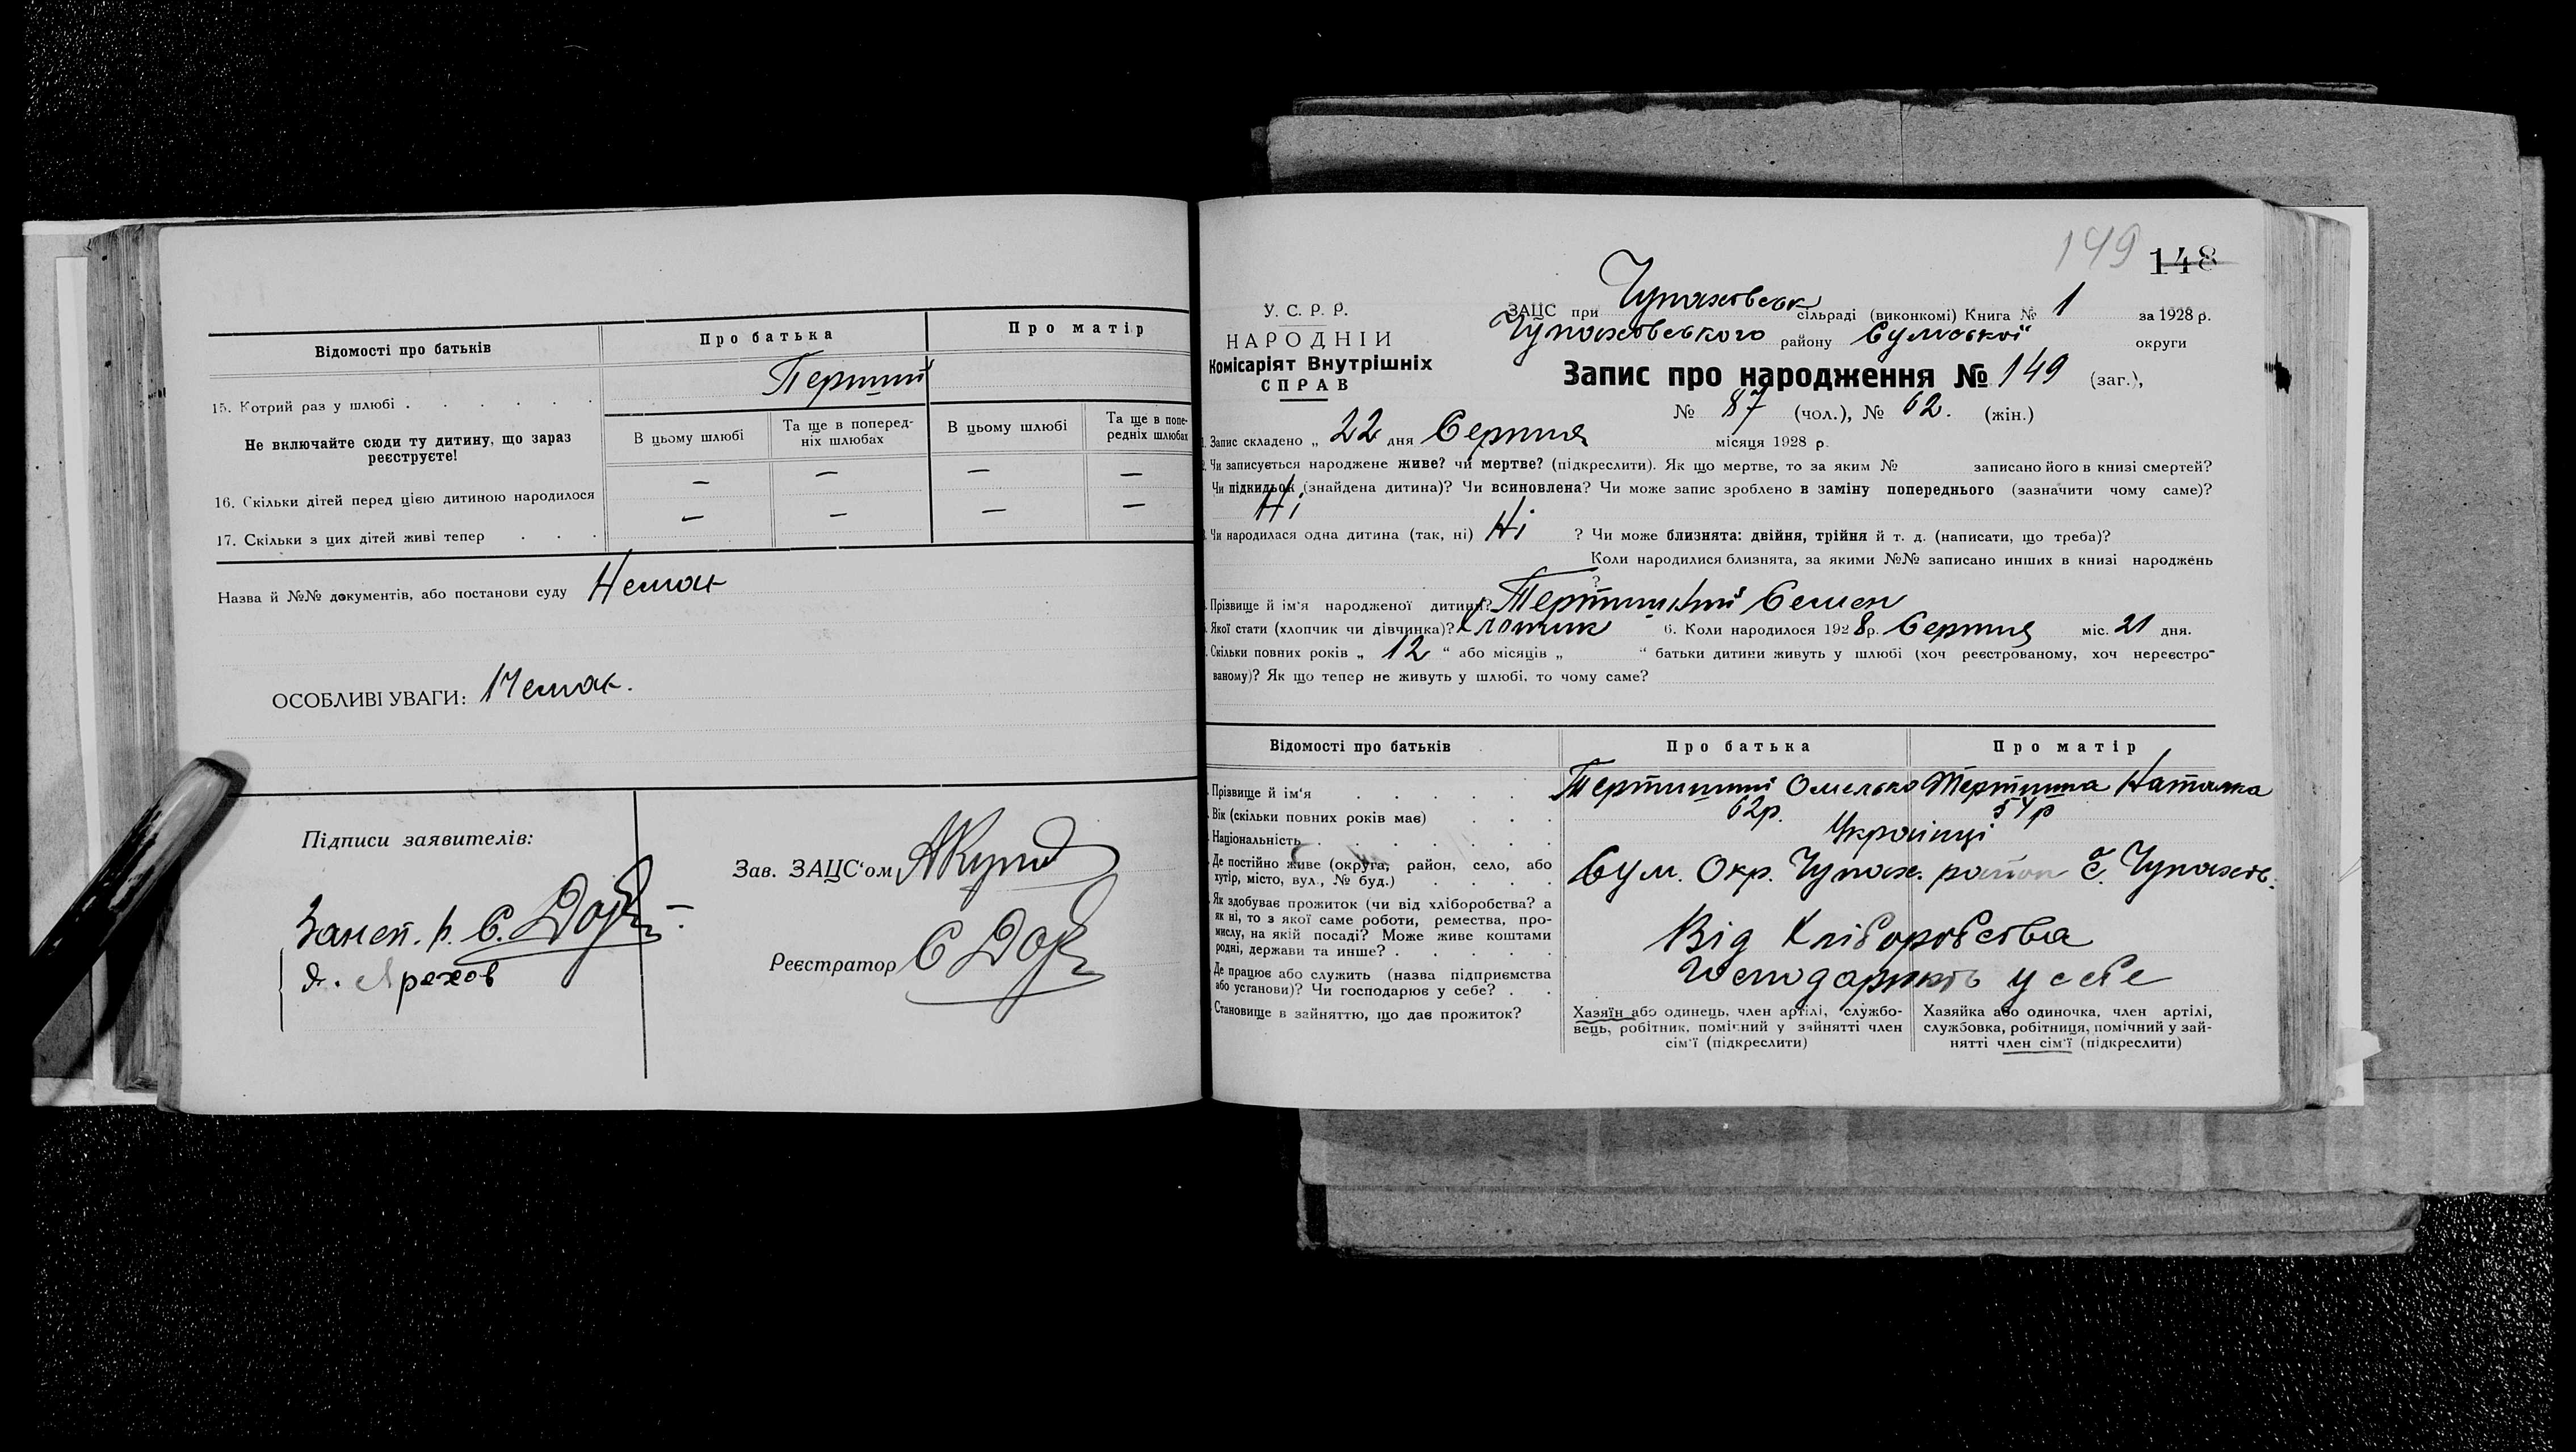 Відомості про батьків
Про батька
Про матір
15. Котрий раз у шлюбі . . . . . .
Перший
Не включайте сюди ту дитину, що зараз реєструєте!
В цьому шлюбі
Та ще в поперед-
ніх шлюбах
В цьому шлюбі
Та ще в попе-
редніх шлюбах
16. Скільки дітей перед цією дитиною народилося
— — — —
17. Скільки з цих дітей живі тепер . . .
— — — —
Назва й №№ документів, або постанови суду Немає
ОСОБЛИВІ УВАГИ: Немає.
Підписи заявителів:
Зав. ЗАЦС'ом
Реєстратор
149 148
У. С. Р. Р.
НАРОДНІЙ
Комісаріят Внутрішніх
СПРАВ
ЗАЦС при Чупаховськ сільраді (виконкомі) Книга № 1 за 1928 р.
Чупаховського району Сумської округи
Запис про народження № 149 (заг.),
№ 87 (чол.), № 62. (жін.)
Запис складено „ 22 дня Серпня місяця 1928 р.
Чи записується народжене живе? чи мертве? (підкреслити). Як що мертве, то за яким № записано його в книзі смертей?
Чи підкидьок (знайдена дитина)? Чи всиновлена? Чи може запис зроблено в заміну попереднього (зазначити чому саме)?
Ні
Чи народилася одна дитина (так, ні) Ні ? Чи може близнята: двійня, трійня й т. д. (написати, що треба)?
Коли народилися близнята, за якими №№ записано инших в книзі народжень
?
Прізвище й ім'я народженої дитини? Тертишний Семен
Якої стати (хлопчик чи дівчинка)? Хлопчик 6. Коли народилося 1928р. Серпня міс. 21 дня.
Скільки повних років „ 12 “ або місяців „ “ батьки дитини живуть у шлюбі (хоч реєстрованому, хоч нереєстро-
ваному)? Як що тепер не живуть у шлюбі, то чому саме?
Відомості про батьків
Про батька
Про матір
Прізвище й ім'я . . . . .
Тертишний Омелько
Тертишна Наталка
Вік (скільки повних років має) . . .
62р.
54р
Національність . . . . . . .
Українці
Де постійно живе (округа, район, село, або
хутір, місто, вул., № буд.) . . . .
Сум. Окр. Чупах. район С. Чупахов.
Як здобуває прожиток (чи від хліборобства? а
як ні, то з якої саме роботи, ремества, про-
мислу, на якій посаді? Може живе коштами
родні, держави та инше? . . . . .
Від Хліборобства
Де працює або служить (назва підприємства
або установи)? Чи господарює у себе? . .
Господарюють у себе
Становище в зайняттю, що дає прожиток?
Хазяїн або одинець, член артілі, службо-
вець, робітник, помічний у зайнятті член
сім'ї (підкреслити)
Хазяйка або одиночка, член артілі,
службовка, робітниця, помічний у зай-
нятті член сім'ї (підкреслити)